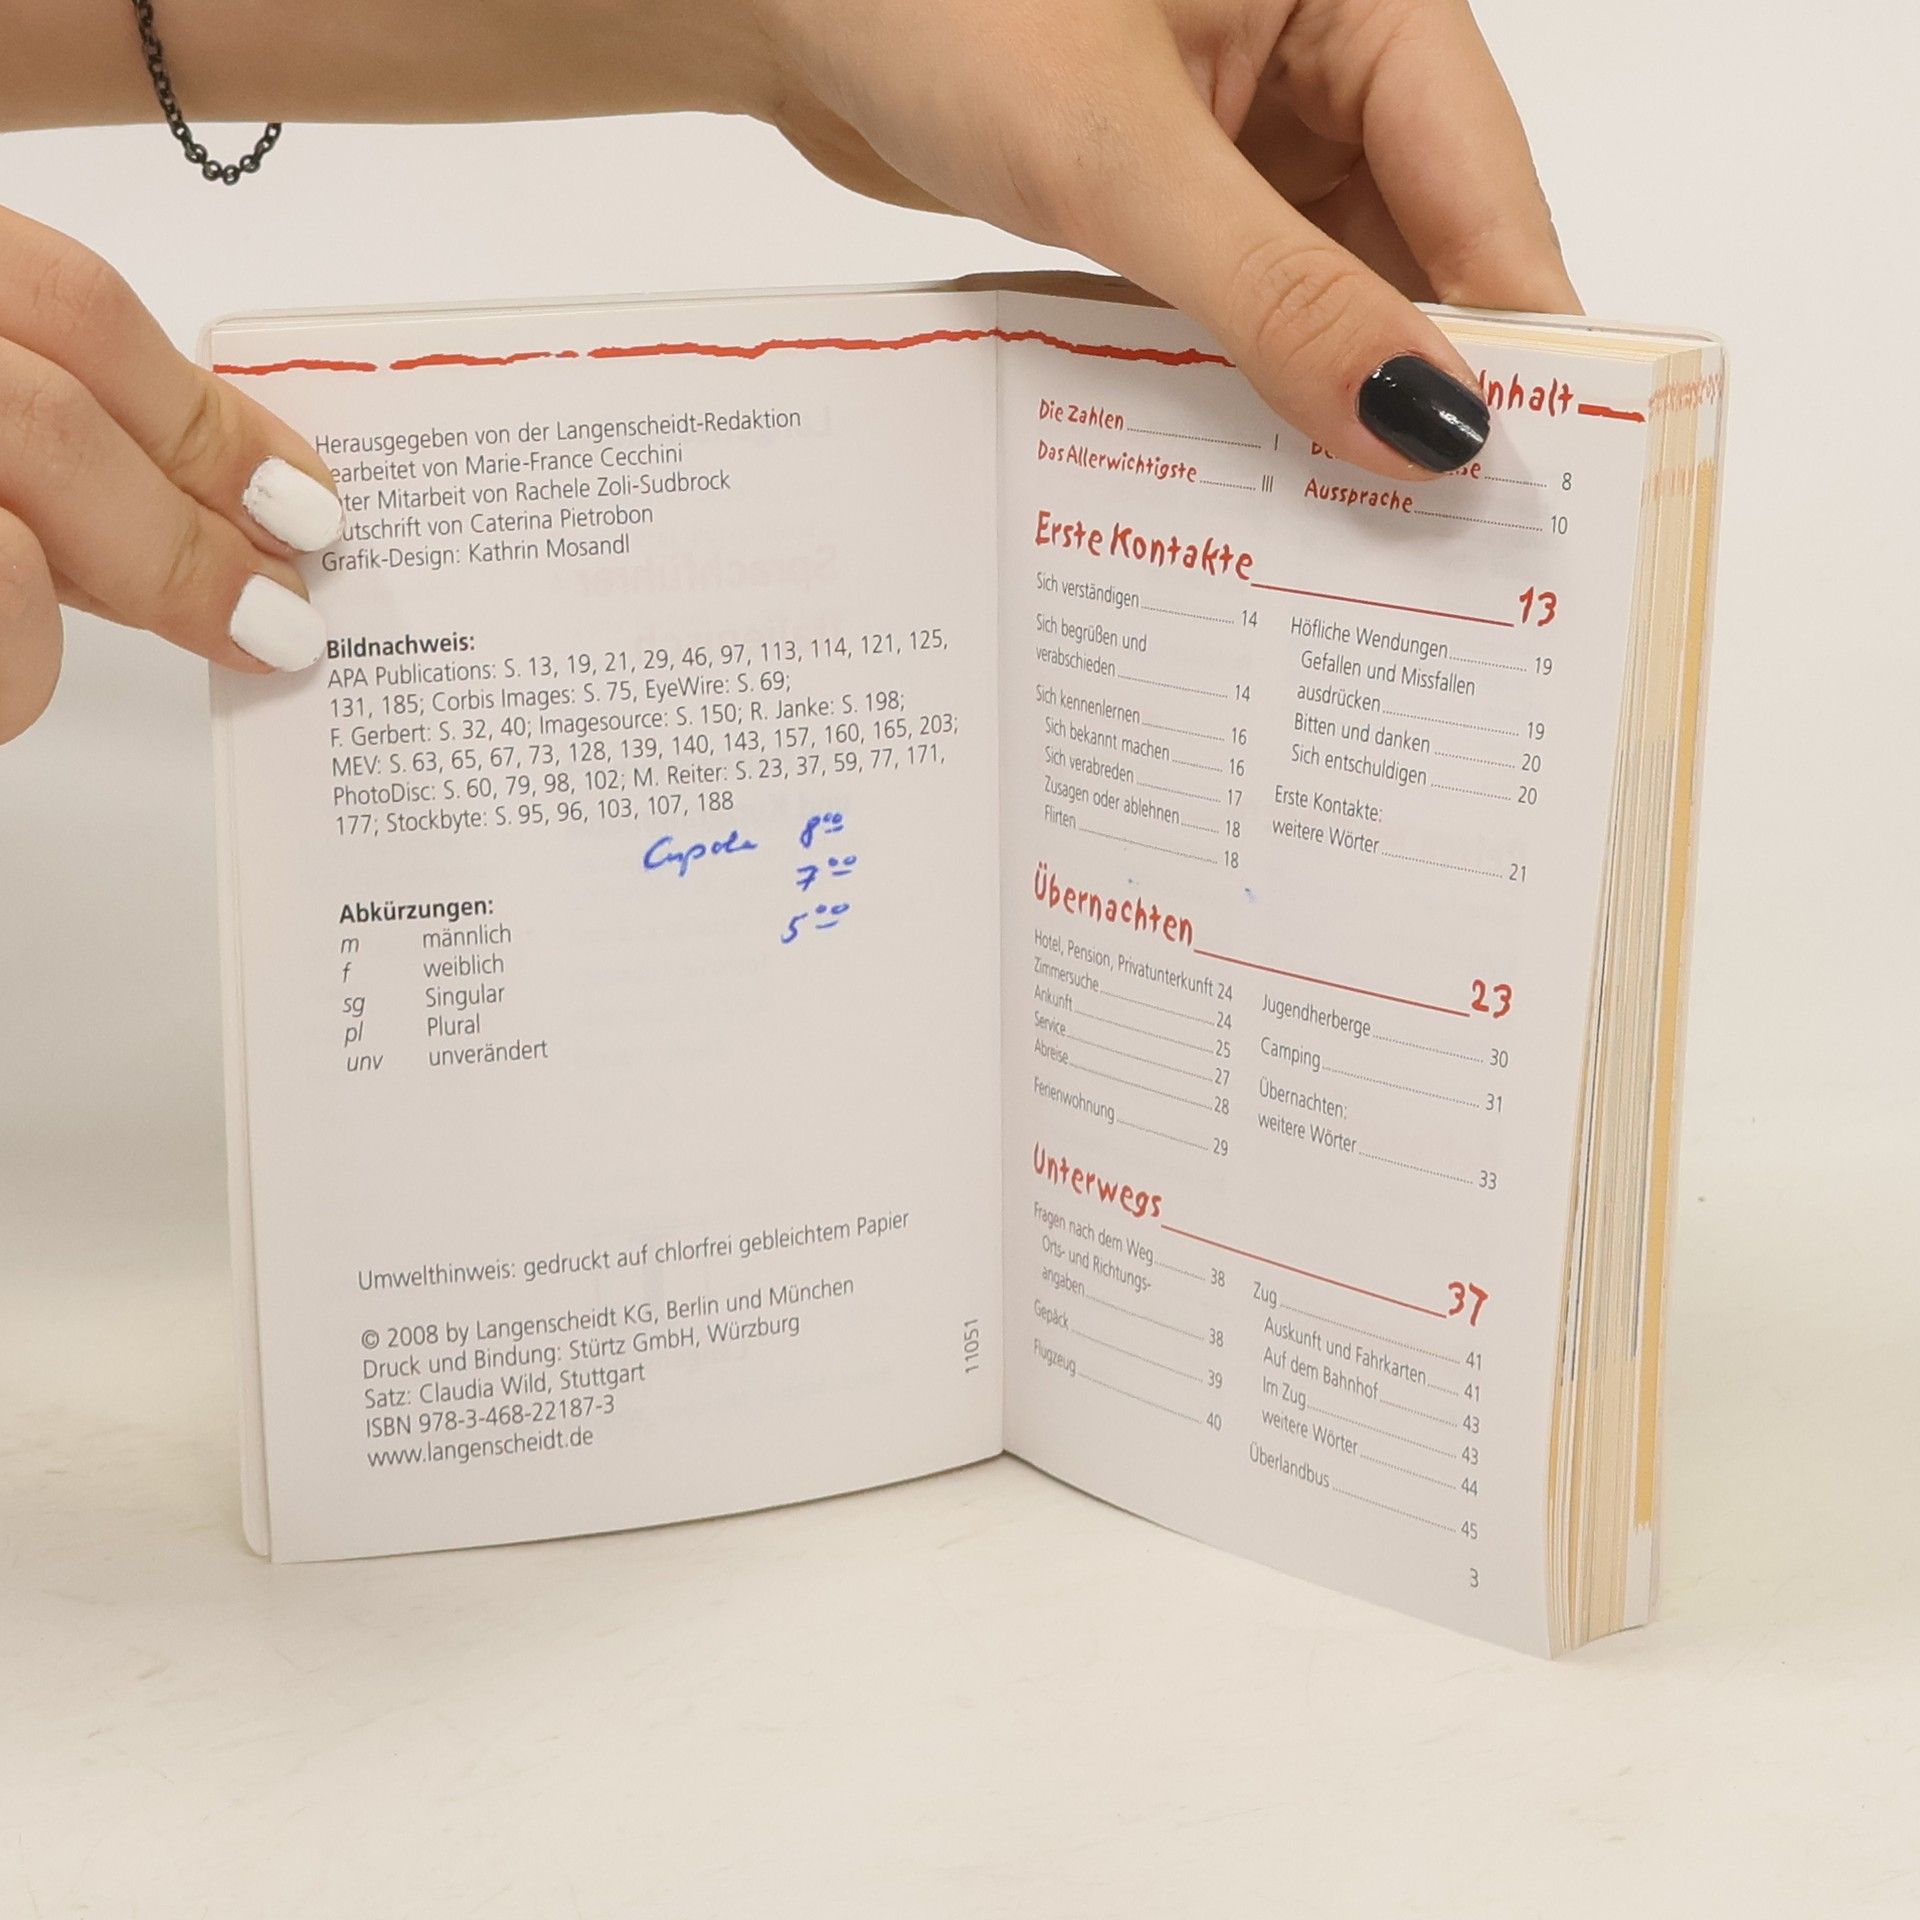 Herausgegeben von der Langenscheidt-Redaktion
earbeitet von Marie-France Cecchini
ter Mitarbeit von Rachele Zoli-Sudbrock
utschrift von Caterina Pietrobon
Grafik-Design: Kathrin Mosandl
Bildnachweis:
APA Publications: S. 13, 19, 21, 29, 46, 97, 113, 114, 121, 125,
131, 185; Corbis Images: S. 75, EyeWire: S. 69;
F. Gerbert: S. 32, 40; Imagesource: S. 150; R. Janke: S. 198;
MEV: S. 63, 65, 67, 73, 128, 139, 140, 143, 157, 160, 165, 203;
PhotoDisc: S. 60, 79, 98, 102; M. Reiter: S. 23, 37, 59, 77, 171,
177; Stockbyte: S. 95, 96, 103, 107, 188
Cupola 8 00
7 00
5 00
Abkürzungen:
m männlich
f weiblich
sg Singular
pl Plural
unv unverändert
Umwelthinweis: gedruckt auf chlorfrei gebleichtem Papier
© 2008 by Langenscheidt KG, Berlin und München
Druck und Bindung: Stürtz GmbH, Würzburg
Satz: Claudia Wild, Stuttgart
ISBN 978-3-468-22187-3
www.langenscheidt.de
11051
Inhalt
Die Zahlen I
Das Allerwichtigste III
8
Aussprache 10
Erste Kontakte 13
Sich verständigen 14
Sich begrüßen und
verabschieden 14
Sich kennenlernen 16
Sich bekannt machen 16
Sich verabreden 17
Zusagen oder ablehnen 18
Flirten 18
Höfliche Wendungen 19
Gefallen und Missfallen
ausdrücken 19
Bitten und danken 20
Sich entschuldigen 20
Erste Kontakte:
weitere Wörter 21
Übernachten 23
Hotel, Pension, Privatunterkunft 24
Zimmersuche 24
Ankunft 25
Service 27
Abreise 28
Ferienwohnung 29
Jugendherberge 30
Camping 31
Übernachten:
weitere Wörter 33
Unterwegs 37
Fragen nach dem Weg 38
Orts- und Richtungs-
angaben 38
Gepäck 39
Flugzeug 40
Zug 41
Auskunft und Fahrkarten 41
Auf dem Bahnhof 43
Im Zug 43
weitere Wörter 44
Überlandbus 45
3